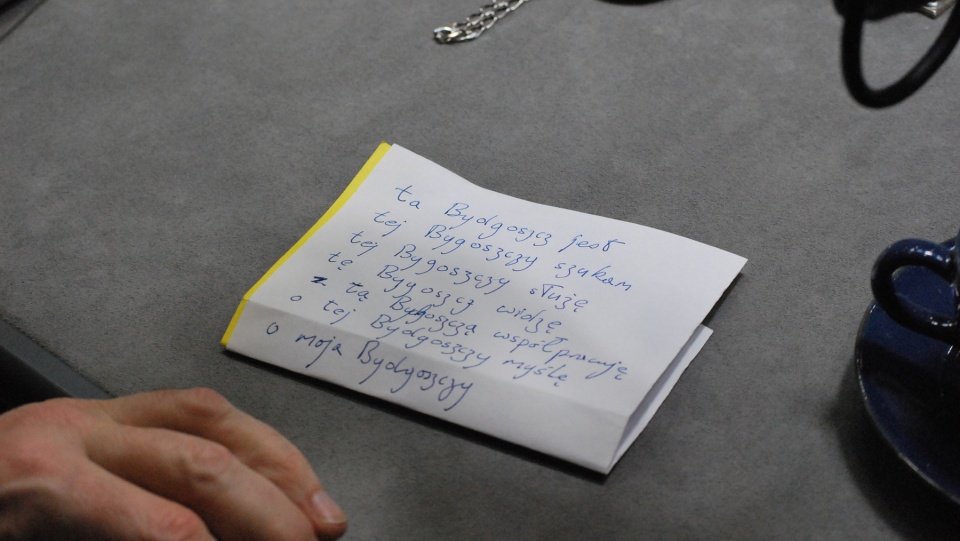 ta Bydgoszcz jest
tej Bygoszczy szukam
tej Bygoszczy służę
tę Bygoszcz widzę
z tą Bydgoszczą współpracuję
o tej Bydgoszczy myślę
o moja Bydgoszczy